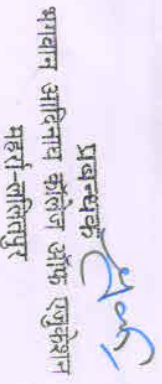 प्रबन्धक
भगवान आदिनाथ कॉलेज ऑफ एजुकेशन
महर्रा-ललितपुर